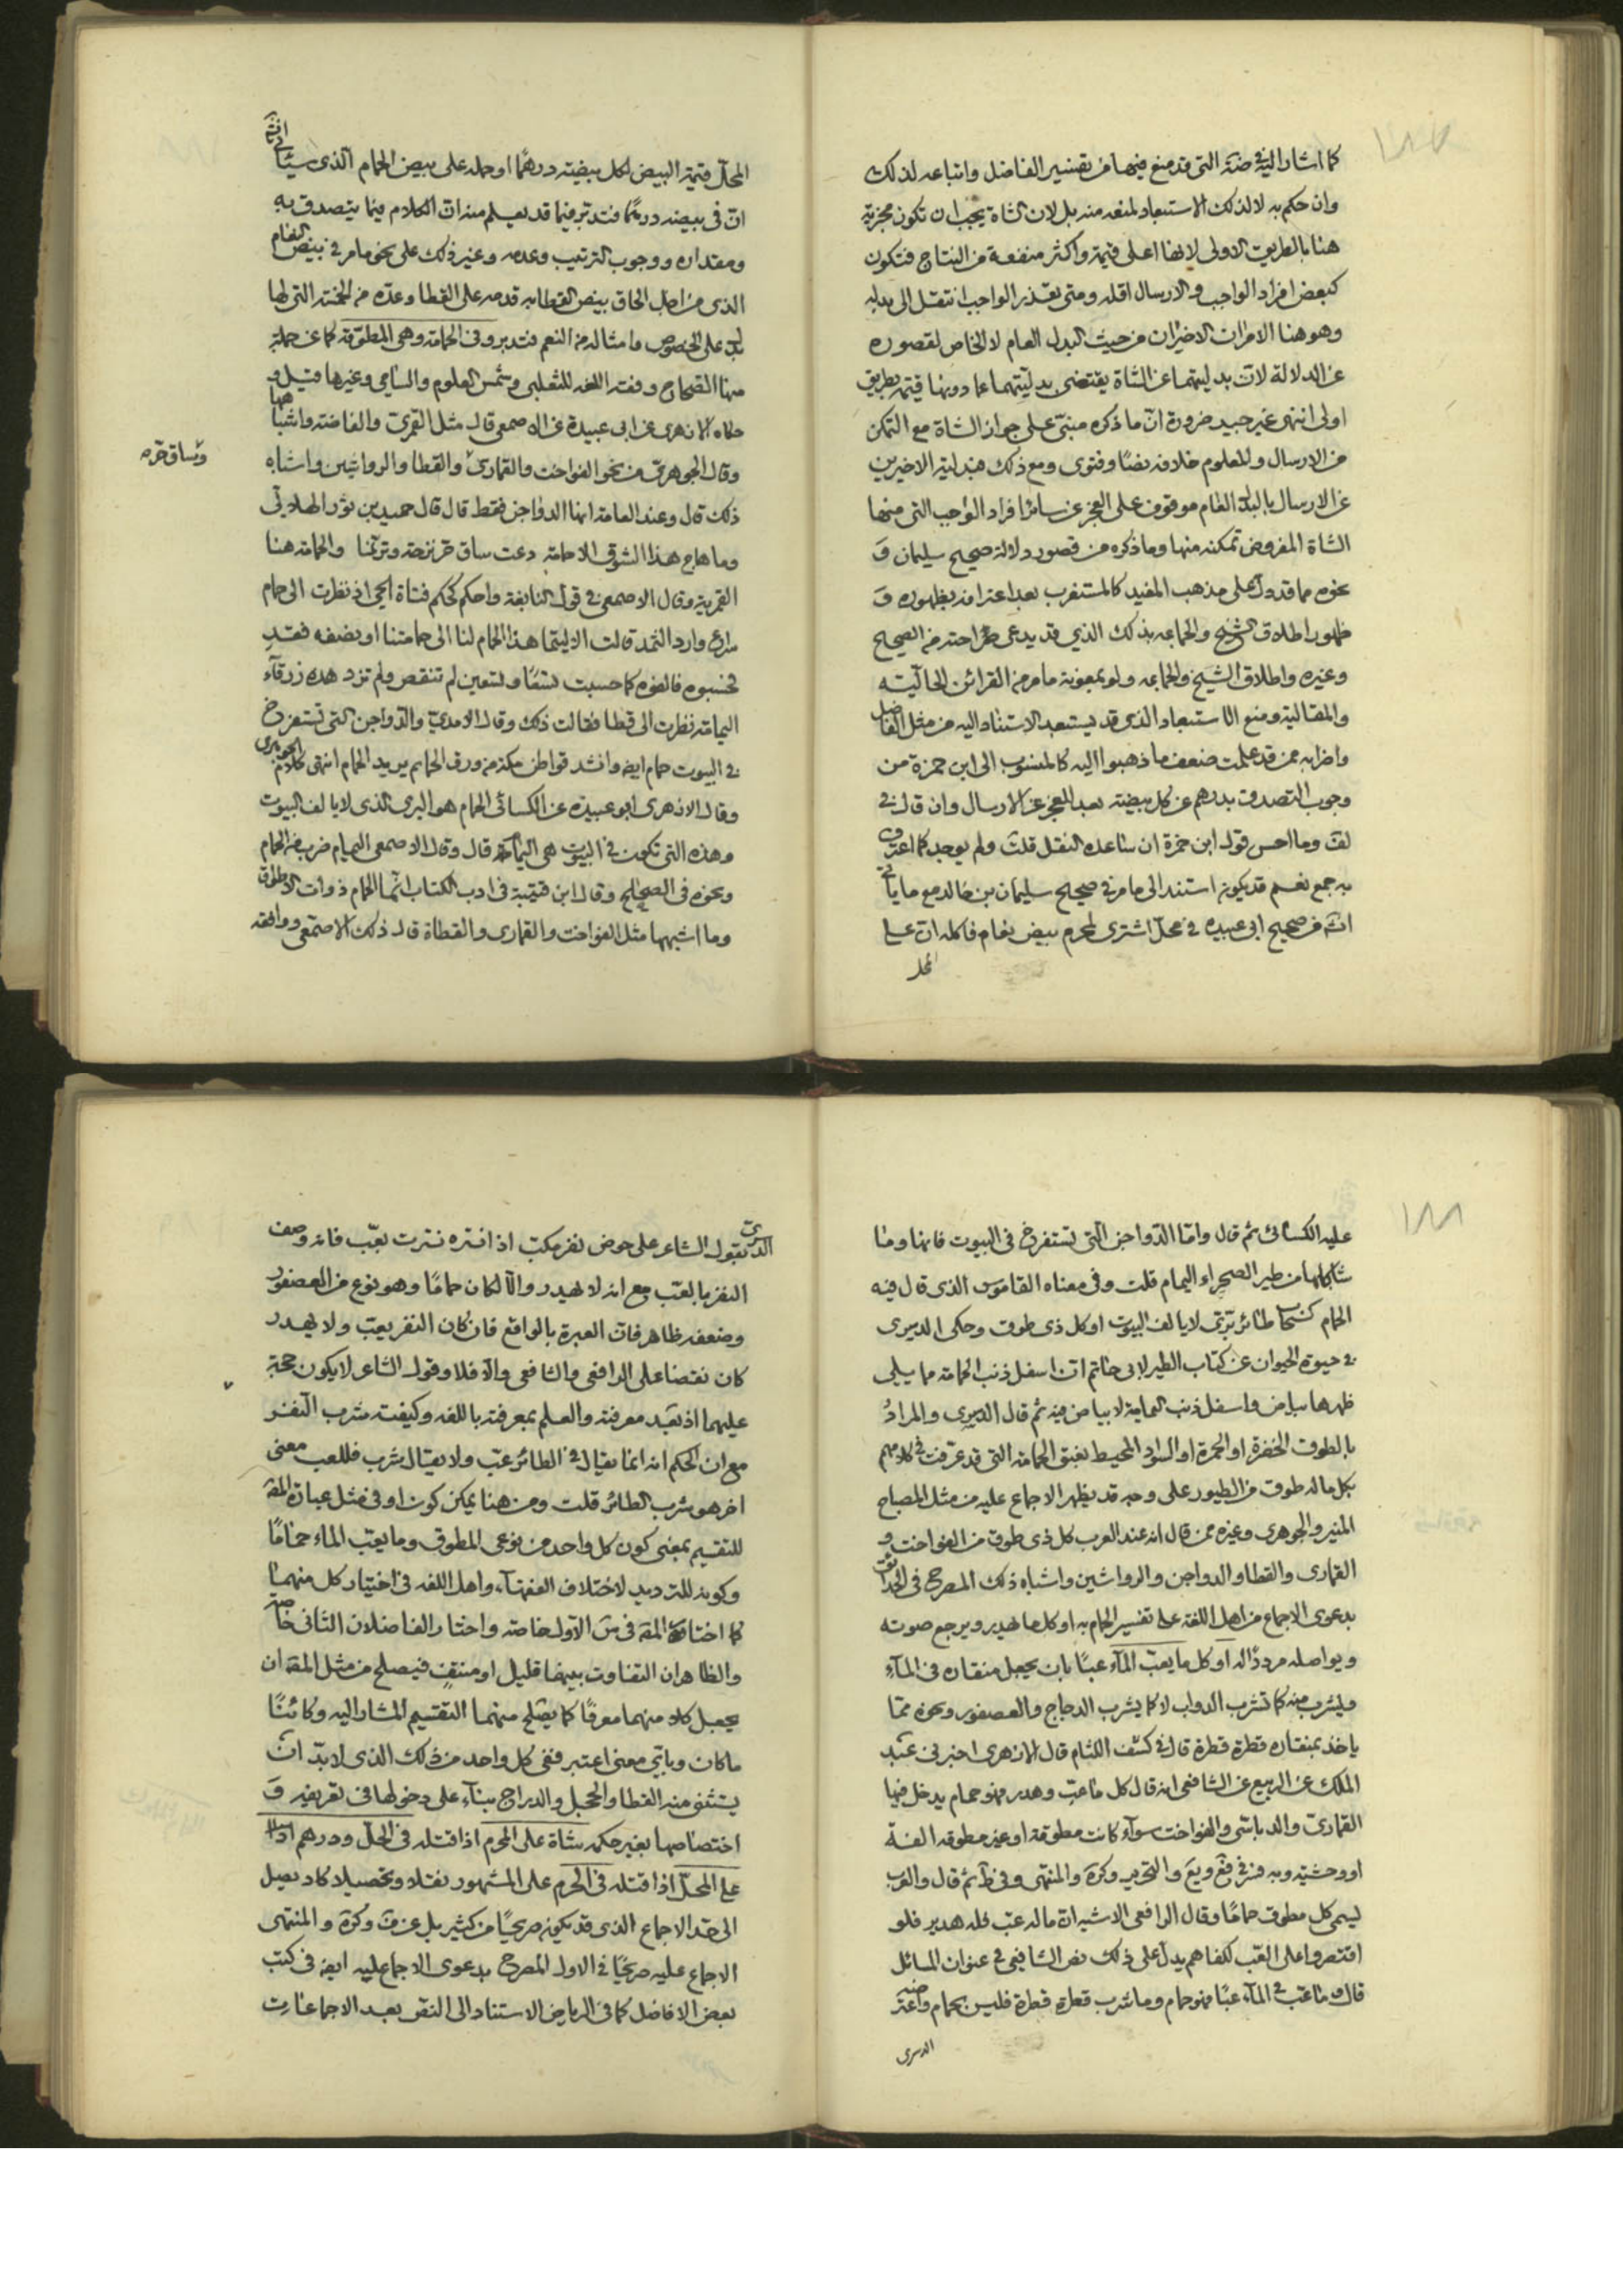 كما اشار اليه في ضة التي قد منع فيها من تفسير الفاضل واتباعه لذلك
وان حكم به لا لذلك الاستبعاد لمنعه منه بل لان الشاة يجب ان تكون مجزية
هنا بالطريق الاولى لانها اعلى قيمة واكثر منفعة من النتاج فتكون
كبعض افراد الواجب والارسال اقله ومتى تعذر الواجب انتقل الى بدله
وهو هنا الامران الاخيران من حيث البدل العام لا الخاص لقصوره
عن الدلالة لان بدليتهما عن الشاة يقتضى بدليتهما عما دونها قيمة بطريق
اولى انتهى غير جيد ضرورة ان ما ذكره مبنى على جواز الشاة مع التمكن
من الارسال والمعلوم خلافه نصا وفتوى ومع ذلك فبدلية الاخيرين
عن الارسال بالبدل العام موقوف على العجز عن سائر افراد الواجب التي منها
الشاة المفروض تمكنه منها وما ذكره من قصور دلالة صحيح سليمان و
نحوه مما قد دل على مذهب المفيد كالمستغرب بعد اعترافه بظهوره و
ظهور اطلاق الشيخ والجماعه بذلك الذي قد يدعى صراحته من الصحيح
وغيره واطلاق الشيخ والجماعه ولو بمعونة ما مر من القرائن الحالية
والمقالية ومنع الاستبعاد الذي قد يستبعد الاستناد اليه من مثل الفاضل
واضرابه ممن قد علمت ضعف ما ذهبوا اليه كالمنسوب الى ابن حمزة من
وجوب التصدق بدرهم عن كل بيضة بعد العجز عن الارسال وان قال في
لف وما احسن قول ابن حمزة ان ساعده النقل قلت ولم يوجد كما اعترف
به جمع نعم قد يكون استند الى ما مر في صحيح سليمان بن خالد مع ما يأتي
انش من صحيح ابى عبيده في محل اشترى لمحرم بيض نعام فاكله ان على
المحل
المحل قيمة البيض لكل بيضة درهما او حمله على بيض الحمام الذي سيأتي انش
ان في بيضه درهما فتدبر فيما قد يعلم منه ان الكلام فيما يتصدق به
ومقداره ووجوب الترتيب وعدمه وغير ذلك على نحو ما مر في بيض النعام
الذي من اجل الحاق بيض القطا به قدمه على القطا وعده من الخمسة التي لها
بدل على الخصوص ما مثاله من النعم فتدبر وفي الحمامة وهي المطوقة كما عن جملة
منها الصحاح وفقه اللغه للثعلبى وشمس العلوم والسامي وغيرها قيل و
حكاه الازهرى عن ابى عبيدة عن الاصمعى قال مثل القمرى والفاخته واشباهها
وقال الجوهرى من نحو الفواخت والقمارى والقطا والرواشين واشباه
وساق حر
ذلك قال وعند العامة انها الدواجن فقط قال قال حميد بن ثور الهلالي
وما هاج هذا الشوق الا حمامة دعت ساق حر نزحة وترنما والحمامة هنا
القمرية وقال الاصمعى في قول النابغة واحكم كحكم فتاة الحي اذ نظرت الى حمام
شراع وارد الثمد قالت الا ليتما هذا الحمام لنا الى حمامتنا او نصفه فقد
فحسبوه فالفوه كما حسبت تسعا وتسعين لم تنقص ولم تزد هذه زرقاء
اليمامة نظرت الى قطا فقالت ذلك وقال الامدى والدواجن التي تستفرخ
في البيوت حمام ايض وانشد قواطن مكة من ورق الحمام يريد الحمام انتهى كلام الجوهرى
وقال الازهرى ابو عبيده عن الكسائى الحمام هو البرى الذي لا يالف البيوت
وهذه التي تكون في البيوت هي اليمامة قال وقال الاصمعى اليمام ضرب من الحمام
ونحوه في الصحاح وقال ابن قتيبة في ادب الكتاب انما الحمام ذوات الاطواق
وما اشبهها مثل الفواخت والقمارى والقطاة قال ذلك الاصمعى ووافقه
١٨٨
عليه الكسائى ثم قال واما الدواجن التي تستفرخ في البيوت فانها وما
شاكلها من طير الصحراء اليمام قلت وفي معناه القاموس الذي قال فيه
الحمام كسحاب طائر برى لا يالف البيوت او كل ذى طوق وحكى الدميرى
في حيوة الحيوان عن كتاب الطير لابى حاتم ان اسفل ذنب الحمامة مما يلي
ظهرها بياض واسفل ذنب اليمامة لا بياض فيه ثم قال الدميرى والمراد
بالطوق الخضرة او الحمرة او السواد المحيط بعنق الحمامة التي قد عرفت في كلامهم
بكل ماله طوق من الطيور على وجه قد يظهر الاجماع عليه من مثل المصباح
المنير والجوهرى وغيره ممن قال انه عند العرب كل ذى طوق من الفواخت و
القمارى والقطا والدواجن والرواشين واشباه ذلك المصرح في الحدائق
بدعوى الاجماع من اهل اللغة على تفسير الحمام به او كل ما يهدر ويرجع صوته
ويواصله مرددا له او كل ما يعب الماء عبا بان يجعل منقاره في الماء
ويشرب منه كما تشرب الدواب لا كما يشرب الدجاج والعصفور ونحوه مما
ياخذ بمنقاره قطرة قطرة قال في كشف اللثام قال الازهرى اخبرنى عبد
الملك عن الربيع عن الشافعى انه قال كل ما عب وهدر فهو حمام يدخل فيها
القمارى والدباسى والفواخت سواء كانت مطوقة او غير مطوقه الفة
او وحشية وبه فسر في فع ويع والتحرير وكرة والمنتهى وفي ط ثم قال والعرب
ليسمى كل مطوق حماما وقال الرافعى الاشبه ان ماله عب فله هدير فلو
اقتصروا على العب لكفاهم يدل على ذلك نص الشافعى في عنوان المسائل
قال وما عب في الماء عبا فهو حمام وما شرب قطرة قطرة فليس بحمام واعترضه
الدميرى
الدميرى بقول الشاعر على حوض نغر مكب اذا فتره فترت يعب فانه وصف
النغر بالعب مع انه لا يهدر والا لكان حماما وهو نوع من العصفور
وضعفه ظاهر فان العبرة بالواقع فان كان النغر يعب ولا يهدر
كان نقضا على الرافعى والشافعى والا فلا وقول الشاعر لا يكون حجة
عليهما اذ بعد معرفته والعلم بمعرفته باللغه وكيفية شرب النغر
مع ان الحكم انه انما يقال في الطائر عب ولا يقال شرب فللعب معنى
اخر هو شرب الطائر قلت ومن هنا يمكن كون او في مثل عبارة المقه
للتقسيم بمعنى كون كل واحد من نوعى المطوق وما يعب الماء حماما
وكونه للترديد لاختلاف الفقهاء واهل اللغه في اختيار كل منهما
كما اختار المقه في ش الاول خاصة واختار الفاضلان الثانى خاصه
والظاهر ان التفاوت بينهما قليل او منتف فيصلح من مثل المقه ان
يجعل كلا منهما معرفا كما يصلح منهما التقسيم المشار اليه وكائنا
ما كان وباى معنى اعتبر ففى كل واحد من ذلك الذي لابد ان
يستثنى منه القطا والحجل والدراج بناء على دخولها في تعريفه و
اختصاصها بغير حكمه شاة على المحرم اذا قتله في الحل ودرهم
على المحل اذا قتله في الحرم على المشهور نقلا وتحصيلا كاد يصل
الى حد الاجماع الذي قد يكون صريحا من كثير بل عن ف وكرة والمنتهى
الاجماع عليه صريحا في الاول المصرح بدعوى الاجماع عليه ايض في كتب
بعض الافاضل كما في الرياض الاستناد الى النص بعد الاجماعات